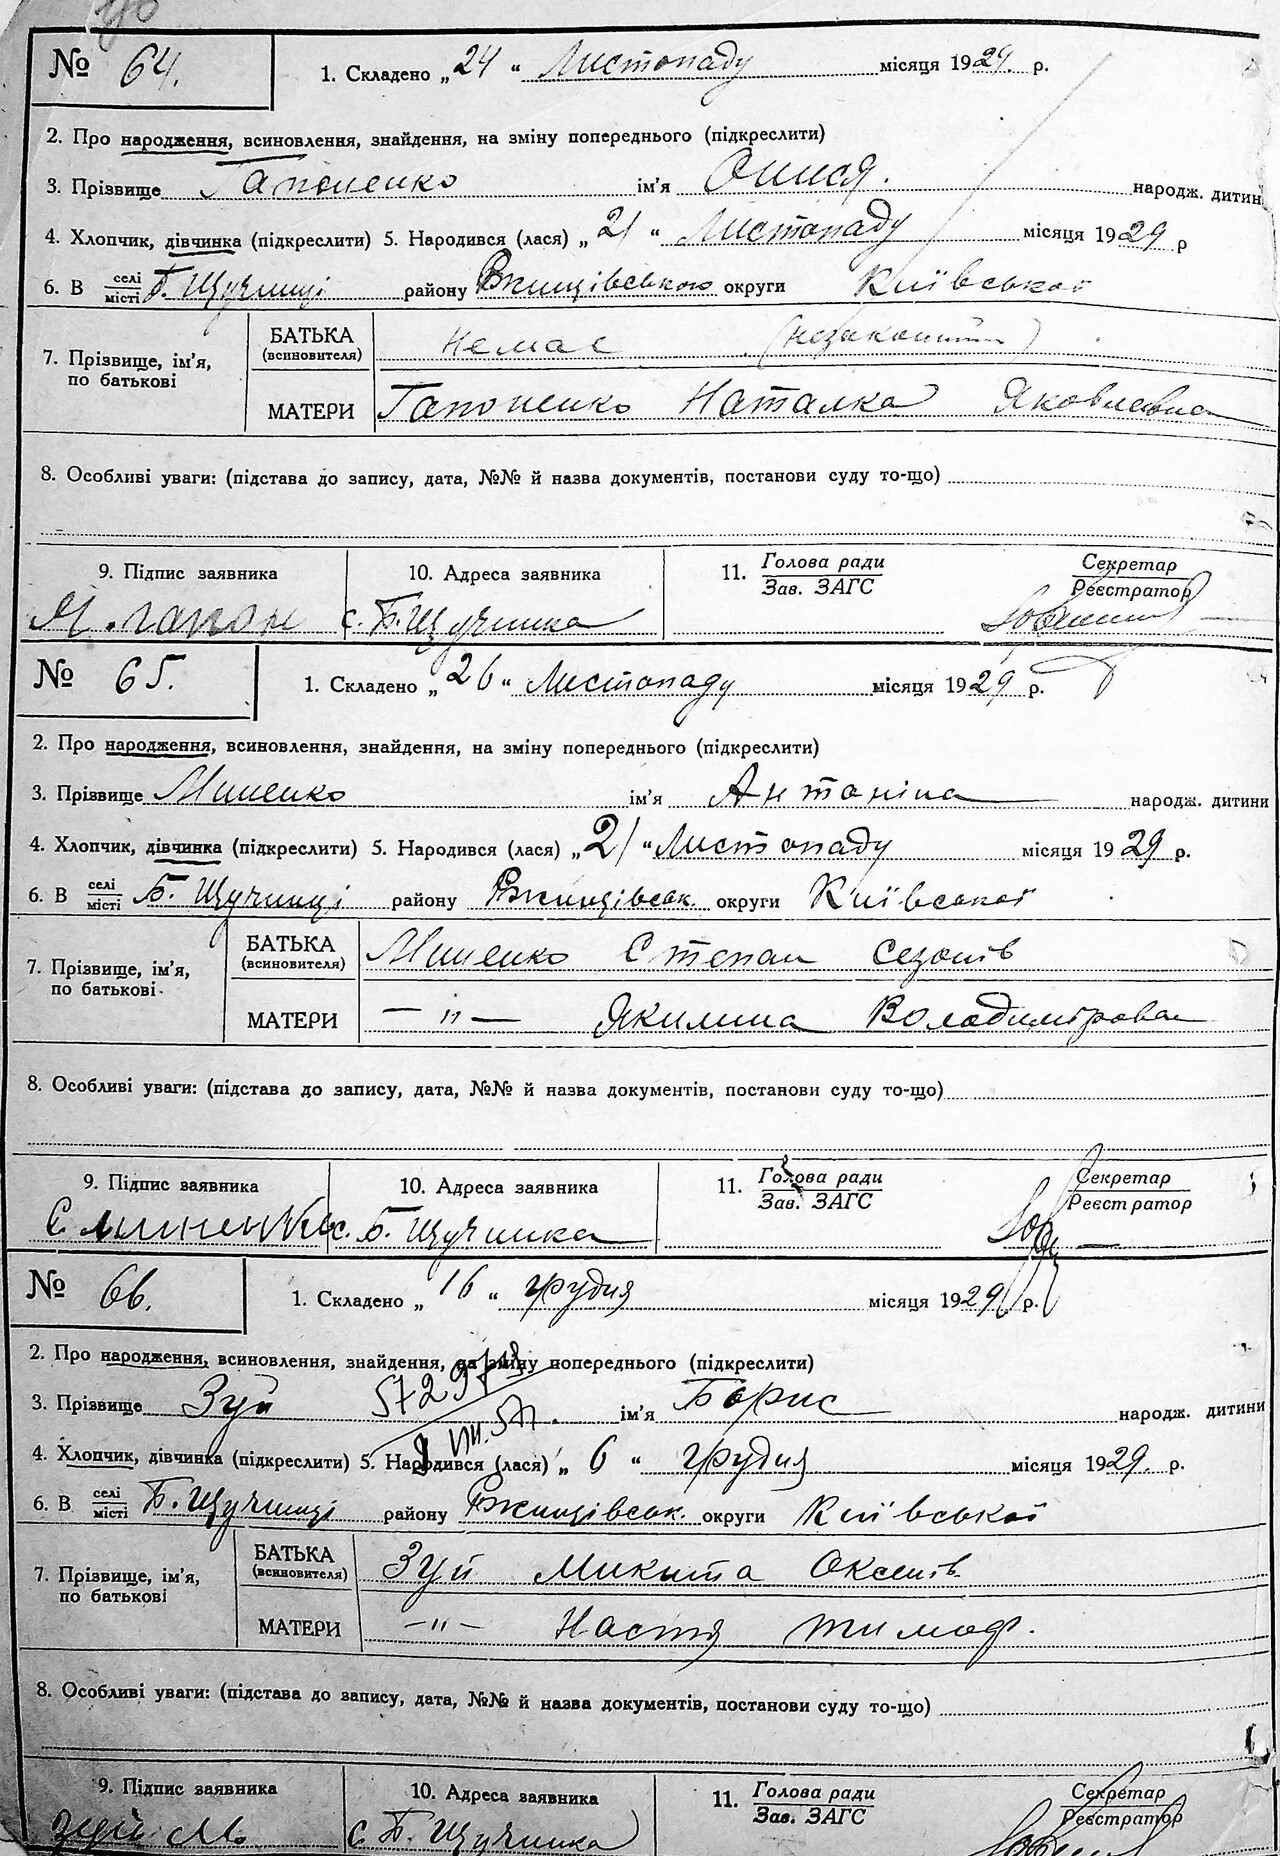 № 64. 1. Складено „ 24 “ Листопаду місяця 1929. р.
2. Про народження, всиновлення, знайдення, на зміну попереднього (підкреслити)
3. Прізвище Гапоненко ім'я народж. дитин
4. Хлопчик, дівчинка (підкреслити) 5. Народився (лася) „ 21 “ Листопаду місяця 1929 р
6. В селі місті Б. Щучинці району Ржищівського округи Київської
7. Прізвище, ім'я, по батькові
БАТЬКА (всиновителя) Немає
МАТЕРИ Гапоненко Наталка Яковлевна
8. Особливі уваги: (підстава до запису, дата, №№ й назва документів, постанови суду то-що)
9. Підпис заявника 10. Адреса заявника 11. Голова ради Зав. ЗАГС Секретар Реєстратор
с. Б. Щучинка
№ 65. 1. Складено „ 26 “ Листопаду місяця 1929 р.
2. Про народження, всиновлення, знайдення, на зміну попереднього (підкреслити)
3. Прізвище Миненко ім'я Антоніна народж. дитини
4. Хлопчик, дівчинка (підкреслити) 5. Народився (лася) „ 21 “ Листопаду місяця 1929 р.
6. В селі місті Б. Щучинці району Ржищівськ. округи Київської
7. Прізвище, ім'я, по батькові
БАТЬКА (всиновителя) Миненко Степан Созонів
МАТЕРИ — " — Якилина Володимірова
8. Особливі уваги: (підстава до запису, дата, №№ й назва документів, постанови суду то-що)
9. Підпис заявника 10. Адреса заявника 11. Голова ради Зав. ЗАГС Секретар Реєстратор
С. Миненко с. Б. Щучинка
№ 66. 1. Складено „ 16 “ грудня місяця 1929 р.
2. Про народження, всиновлення, знайдення, на зміну попереднього (підкреслити)
3. Прізвище Зуй ім'я Борис народж. дитини
4. Хлопчик, дівчинка (підкреслити) 5. Народився (лася) „ 6 “ грудня місяця 1929. р.
6. В селі місті Б. Щучинці району Ржищівськ. округи Київської
7. Прізвище, ім'я, по батькові
БАТЬКА (всиновителя) Зуй Микита Оксентів.
МАТЕРИ — " — Настя Тимоф.
8. Особливі уваги: (підстава до запису, дата, №№ й назва документів, постанови суду то-що)
9. Підпис заявника 10. Адреса заявника 11. Голова ради Зав. ЗАГС Секретар Реєстратор
Зуй М. с. Б. Щучинка